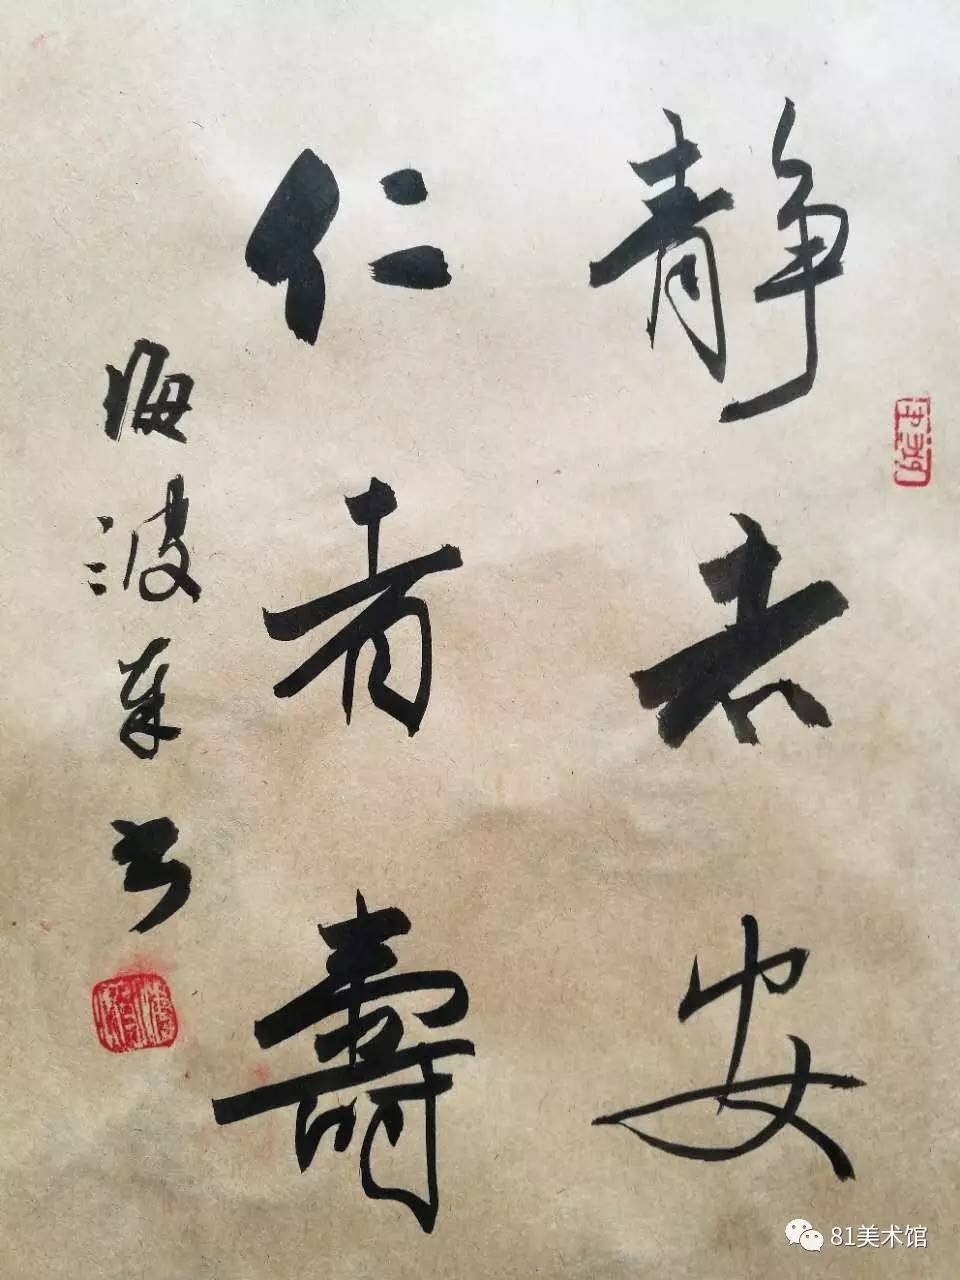 静者安
仁者壽
海波奉书
81美术馆